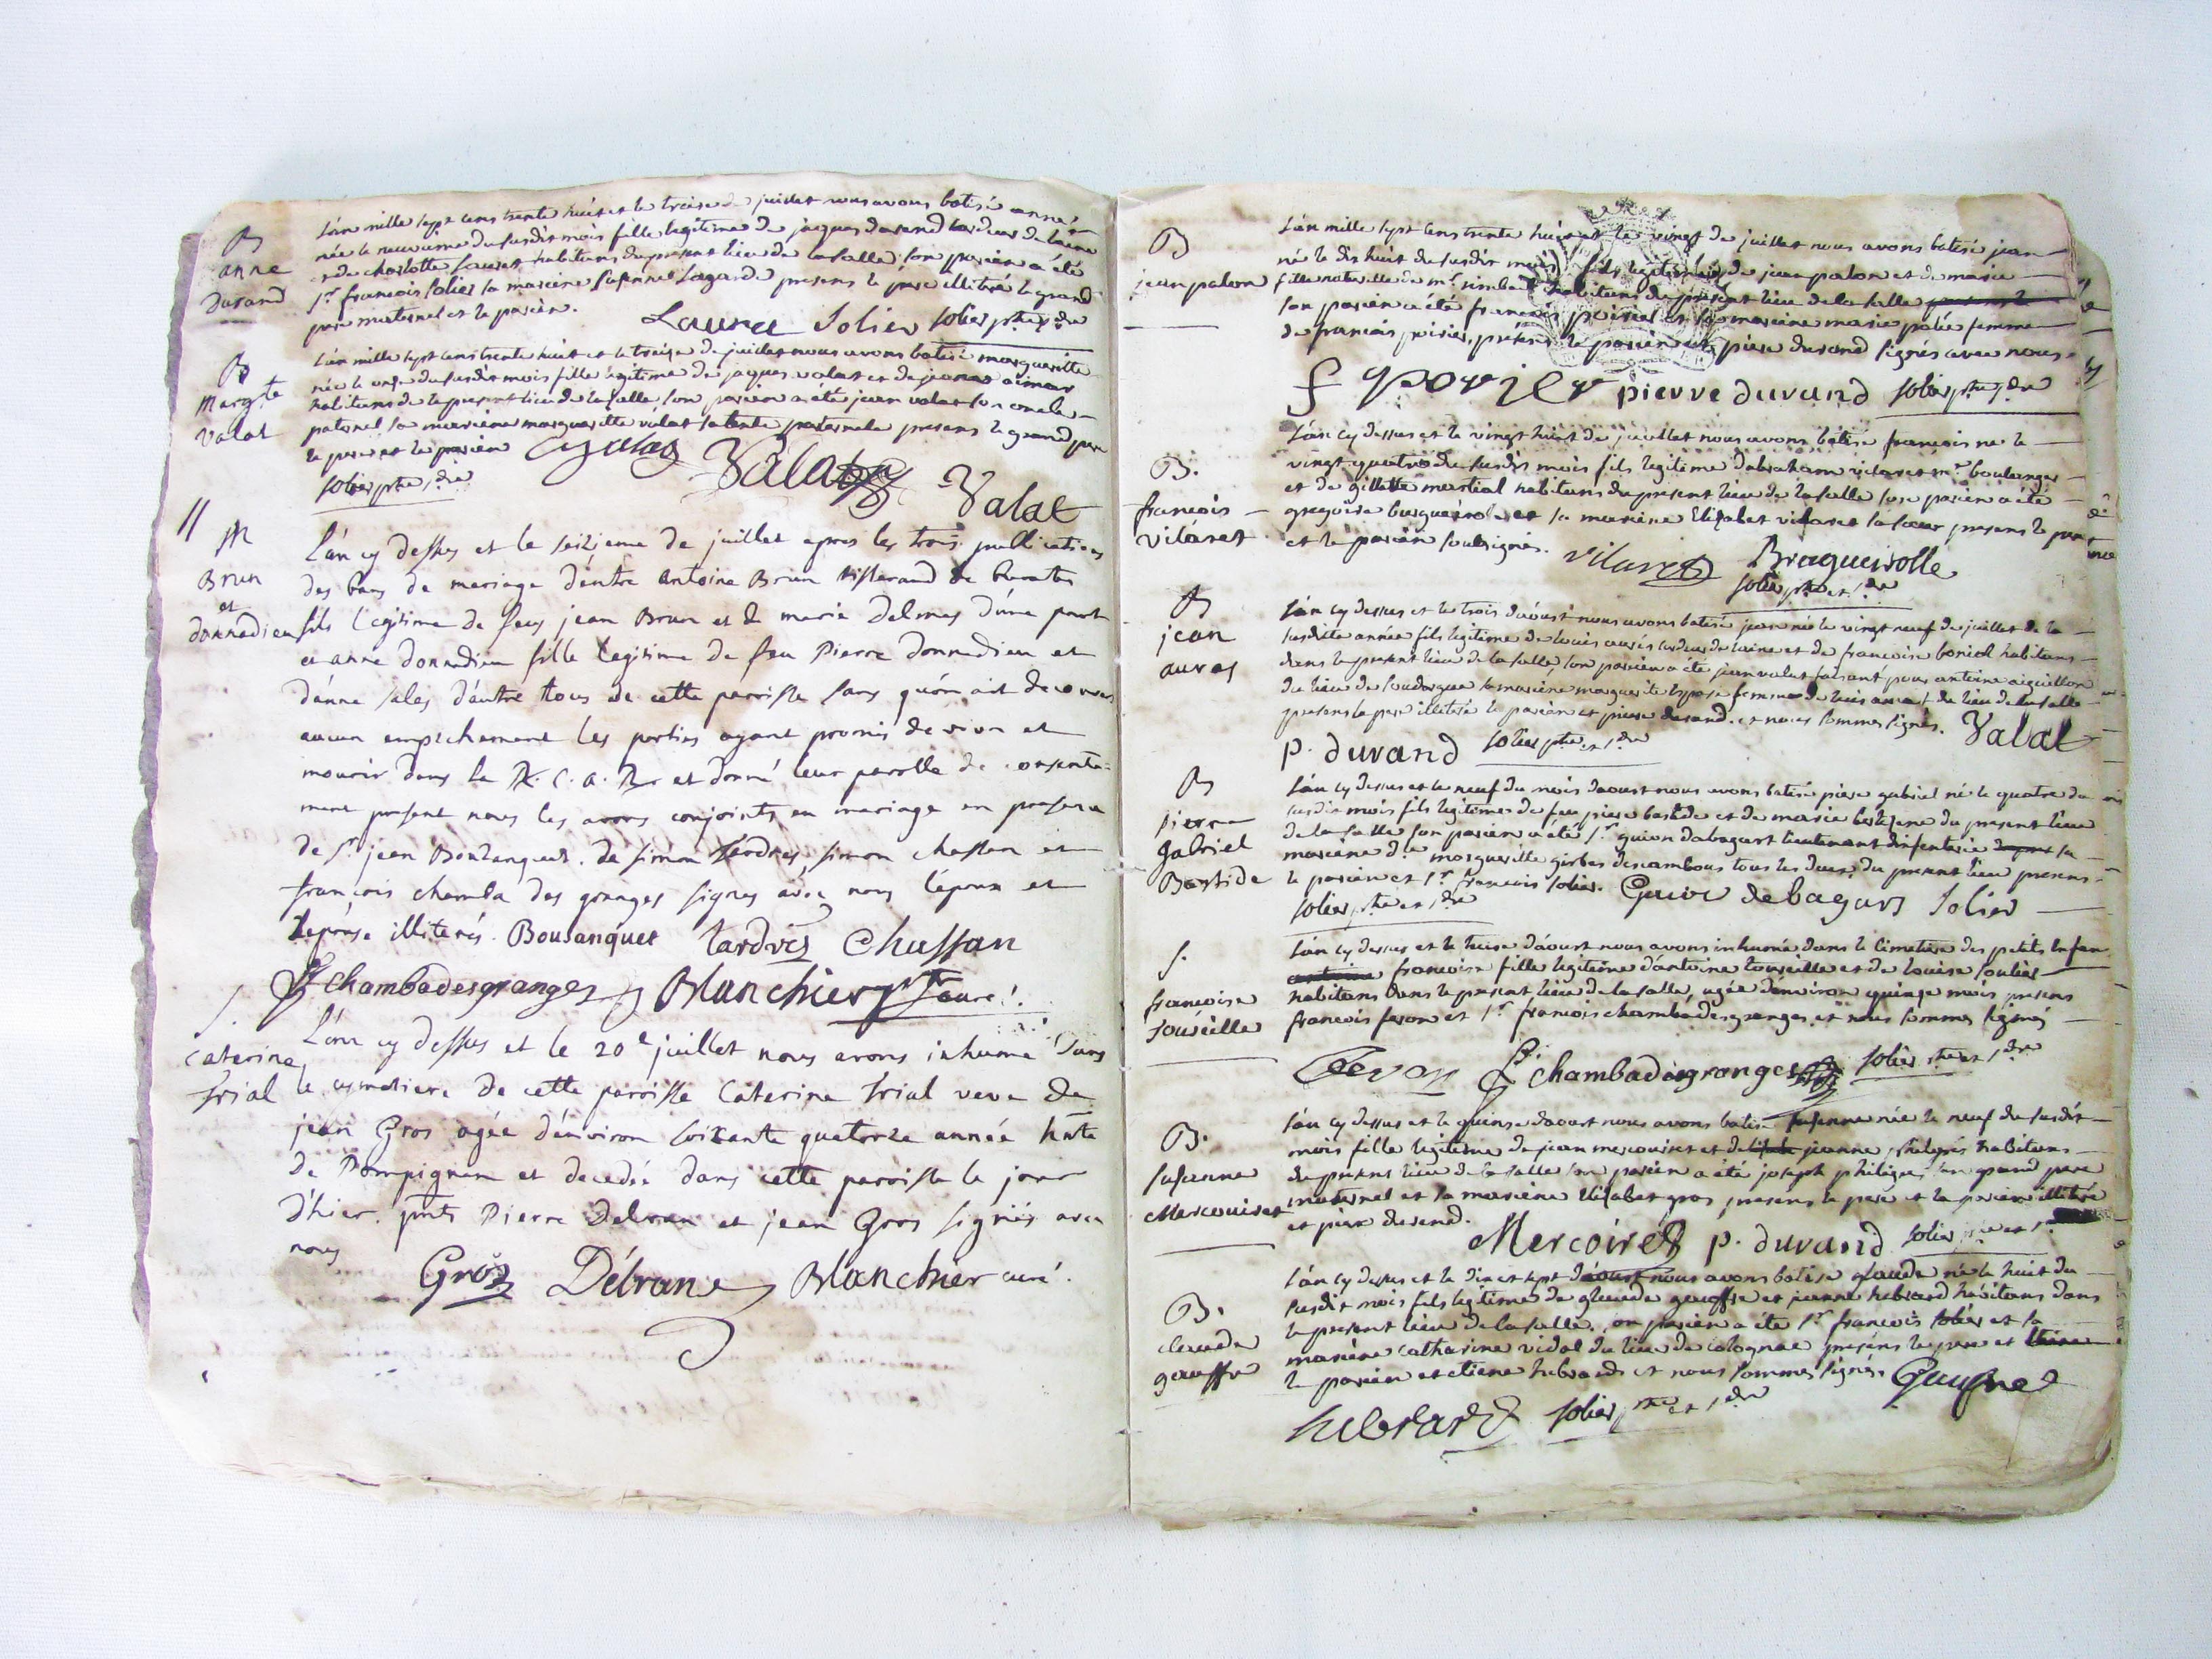 B
anne
Durand
L'an mille sept cens trente huit et le treise de juillet nous avons batisé anne
née le neuvieme du susdit mois fille legitime de jacques durand cardeur de laine
et de charlotte lauret habitans du present lieu de lasalle son parein a été
sr. francois solier sa mareine susanne lagarde presens le pere illitré le grand
pere maternel et le parein.
Lauret Solier solier ptre
B
margte
valat
L'an mille sept cens trente huit et le treise de juillet nous avons batisé margueritte
née le onse du susdit mois fille legitime de jacques valat et de jeanne
habitans de le present lieu de lasalle son parein a été jean valat son oncle
paternel sa mareine marguerite valat sa tante paternele presens le grand pere
le pere et le parein Valat Valat
solier ptre
M
Brun
et
donnadieu
L'an cy dessus et le seizieme de juillet apres les trois publications
des bans de mariage d'entre antoine Brun tisserand de burates
fils legitime de feu jean Brun et de marie delmas d'une part
et anne donnadieu fille legitime de feu Pierre donnadieu et
d'anne sales d'autre tous de cette parroisse sans qu'on ait decouvert
aucun empechement les parties ayant promis de vivre et
mourir dans la R. C. A. R. et donné leur parolle de consente-
ment present nous les avons conjoints en mariage en presence
de sr jean Boulanquet. de simon tardres, simon chassan et
francois chamba des granges signes avec nous l'epoux et
l'epouse illiterés. Bousanquet tardres Chassan
chambadesgranges Blanchier ptre curé.
S.
caterine
trial
L'an cy dessus et le 20e juillet nous avons inhumé dans
le cymetiere de cette parroisse Caterine trial veve de
jean Gros agée d'environ soixante quatorze année hnte
de Pompignan et decedée dans cette parroisse le jour
d'hier. pnts Pierre Delran et jean Gros signés avec
nous
Gros Délran Blanchier curé.
B
jean palon
L'an mille sept cens trente huit et le vingt de juillet nous avons batisé jean
né le dix huit du susdit mois fils legitime de jean palon et de marie
fille naturelle de mr. habitans du present lieu de la salle
son parein a été francois et sa mareine marie femme
de francois, presens le parein et piere durand signés avec nous.
f pierre durand solier ptre
B.
francois
vilaret
L'an cy dessus et le vingt huit de juillet nous avons batisé francois né le
vingt quatre du susdit mois fils legitime d'abraham vilaret mr. boulanger
et de gillette martial habitans du present lieu de lasalle son parein a été
gregoire et sa mareine Elisabet vilaret sa sœur presens le pere
et le parein soubsignés. Vilaret Bragueirolle
solier ptre
B
jean
aures
L'an cy dessus et le trois d'aoust nous avons batisé jean né le vingt neuf de juillet de la
susditte année fils legitime de louis aurés cardeur de laine et de francoise habitans
dans le present lieu de lasalle son parein a été jean valat faisant pour antoine aiguillon
du lieu de soudorgue sa mareine marguerite femme de du lieu de lasalle
presens le pere illiteré le parein et piere durand. et nous sommes signés. Valat
p. durand solier ptre
B
pierre
Gabriel
Bastide
L'an cy dessus et le neuf du mois daoust nous avons batisé piere gabriel né le quatre du
susdit mois fils legitime de feu piere bastide et de marie du present lieu
de la salle son parein a été sr. guion dabagars lieutenant dinfanterie sa
mareine dle marguerite girbes descambous tous les deux du present lieu presens
le parein et sr. francois solier. debagars Solier
solier ptre
S.
francoise
L'an cy dessus et le treise d'aoust nous avons inhumé dans le cimetiere des petits enfan
francoise fille legitime d'antoine et de louise soulier
habitans dans le present lieu de la salle, agée d'environ quinse mois presens
francois et sr francois chambadesgranges et nous sommes signés
chambadesgranges solier ptre
B.
susanne
Mercouiret
L'an cy dessus et le quinse daoust nous avons batisé susanne née le neuf du susdit
mois fille legitime de jean mercouiret et de jeanne habitans
du present lieu de lasalle son parein a été joseph son grand pere
maternel et sa mareine Elisabet gros, presens le pere et le parein illitéré
et piere durand.
Mercoiret p. durand solier ptre
B.
claude
gauffre
L'an cy dessus et le dix et sept d'aoust nous avons batisé glaude né le huit du
susdit mois fils legitime de glaude gauffre et jeanne hebrard habitans dans
le present lieu de lasalle. son parein a été sr. francois solier et sa
mareine catharine vidal du lieu de colognac presens le pere et
le parein et etiene hebrard et nous sommes signés. Gaufre
hebrard solier ptre